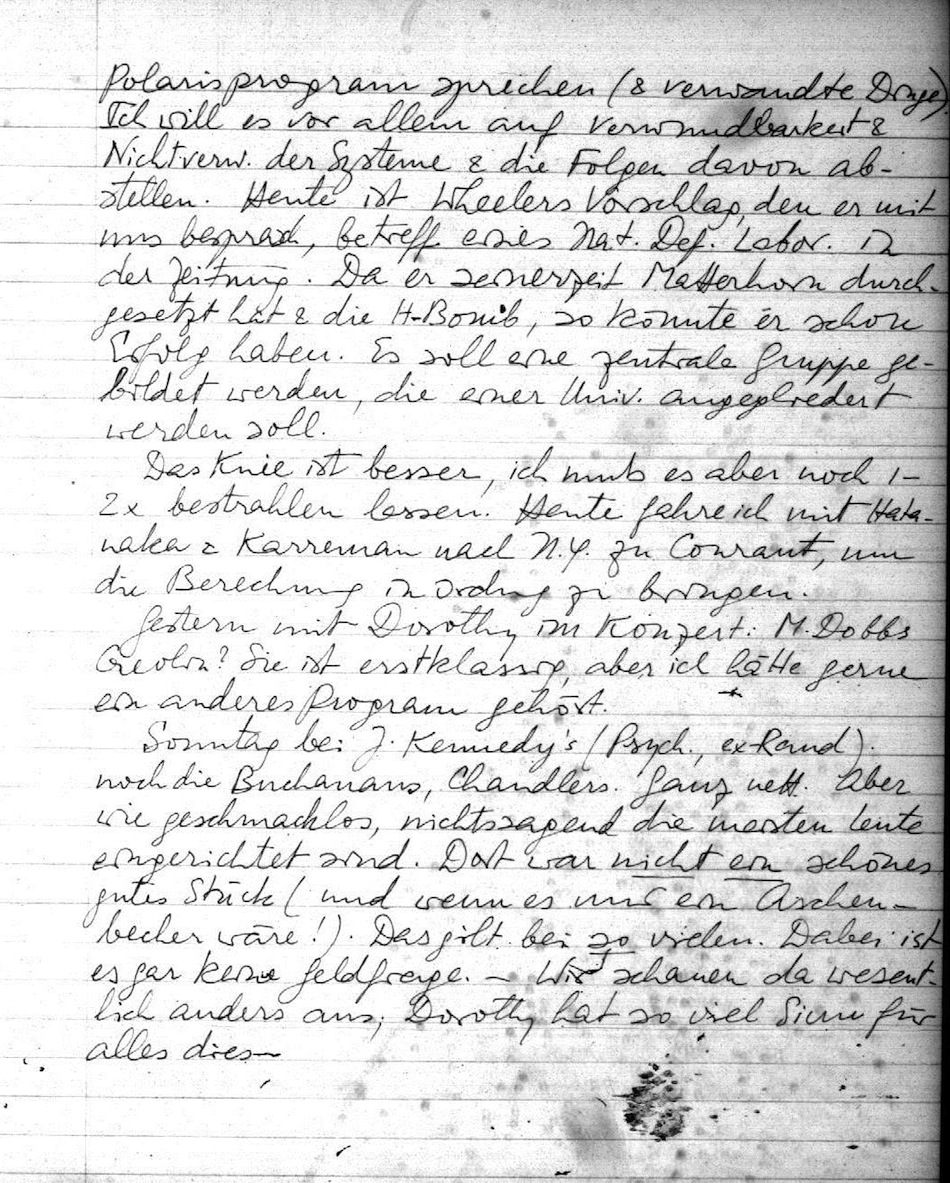 Polarisprogram sprechen (& verwandte Dinge)
Ich will es vor allem auf Verwundbarkeit &
Nichtverw. der Systeme & die Folgen davon ab-
stellen. Heute ist Wheelers Vorschlag, den er mit
uns besprach, betreff eines Nat. Def. Labor. in
der Zeitung. Da er seinerzeit Matterhorn durch-
gesetzt hat & die H-Bomb, so könnte er schon
Erfolg haben. Es soll eine zentrale Gruppe ge-
bildet werden, die einer Univ. angegliedert
werden soll.
Das Knie ist besser, ich muß es aber noch 1-
2x bestrahlen lassen. Heute fahre ich mit Hata-
naka & Karreman nach N.Y. zu Courant, um
die Berechnung in Ordnung zu bringen.
Gestern mit Dorothy im Konzert: M. Dobbs
? Sie ist erstklassig, aber ich hätte gerne
ein anderes Program gehört.
Sonntag bei J. Kennedy's (Psych., ex-Rand).
noch die Buchanans, Chandlers. Ganz nett. Aber
wie geschmacklos, nichtssagend die meisten Leute
eingerichtet sind. Dort war nicht ein schönes
gutes Stück (und wenn es nur ein Aschen-
becher wäre!). Das gilt bei so vielen. Dabei ist
es gar keine Geldfrage. – Wir schauen da wesent-
lich anders aus; Dorothy hat so viel Sinn für
alles dies –